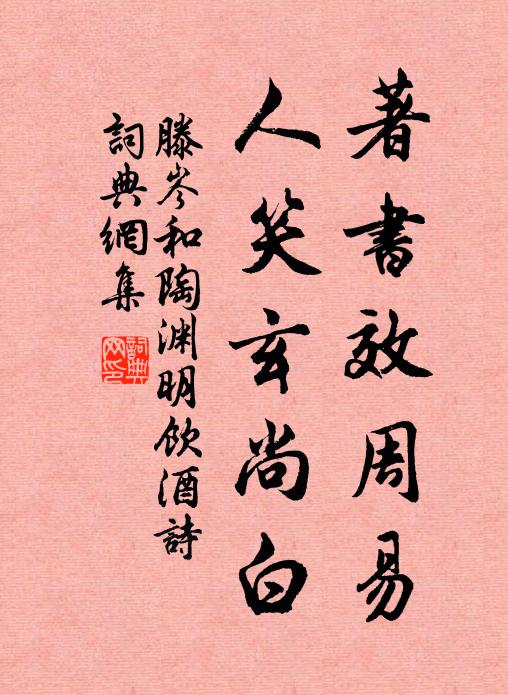 著書效周易
人笑玄尚白
滕岑和陶渊明飲酒詩
詞典網集
詞典網印